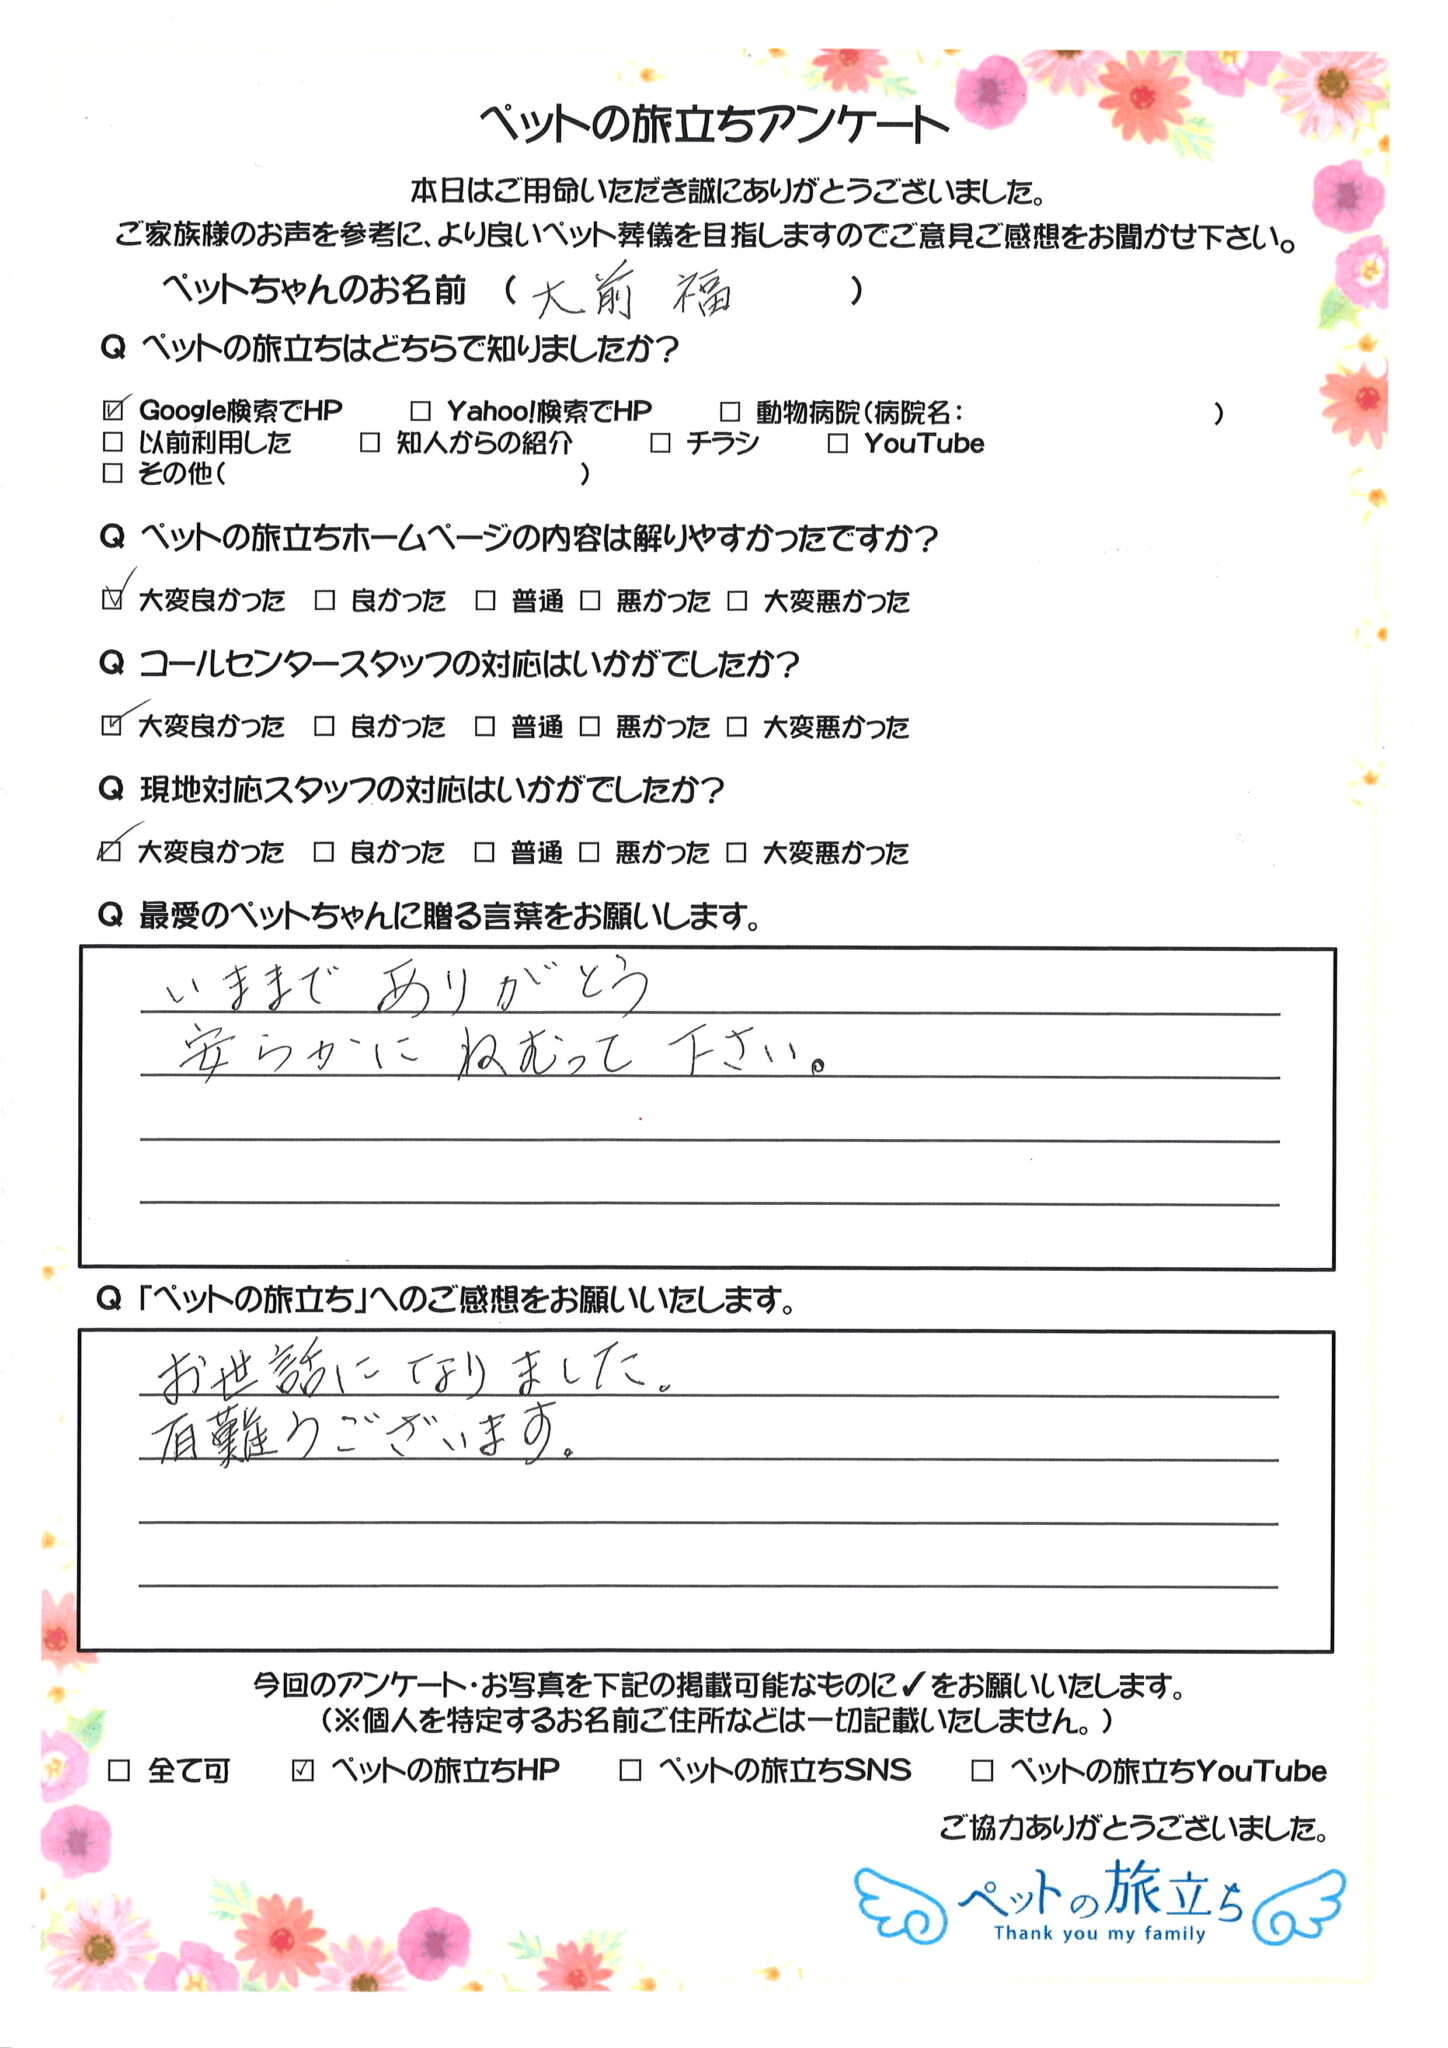 ペットの旅立ちアンケート
本日はご用命いただき誠にありがとうございました。
ご家族様のお声を参考に、より良いペット葬儀を目指しますのでご意見ご感想をお聞かせ下さい。
ペットちゃんのお名前 ( 大前 福 )
Q ペットの旅立ちはどちらで知りましたか?
☑ Google検索でHP □ Yahoo!検索でHP □ 動物病院(病院名: )
□ 以前利用した □ 知人からの紹介 □ チラシ □ YouTube
□ その他( )
Q ペットの旅立ちホームページの内容は解りやすかったですか?
☑ 大変良かった □ 良かった □ 普通 □ 悪かった □ 大変悪かった
Q コールセンタースタッフの対応はいかがでしたか?
☑ 大変良かった □ 良かった □ 普通 □ 悪かった □ 大変悪かった
Q 現地対応スタッフの対応はいかがでしたか?
☑ 大変良かった □ 良かった □ 普通 □ 悪かった □ 大変悪かった
Q 最愛のペットちゃんに贈る言葉をお願いします。
いままで ありがとう
安らかに ねむって 下さい。
Q 「ペットの旅立ち」へのご感想をお願いいたします。
お世話になりました。
有難うございます。
今回のアンケート・お写真を下記の掲載可能なものに✓をお願いいたします。
(※個人を特定するお名前ご住所などは一切記載いたしません。)
□ 全て可 ☑ ペットの旅立ちHP □ ペットの旅立ちSNS □ ペットの旅立ちYouTube
ご協力ありがとうございました。
ペットの旅立ち
Thank you my family